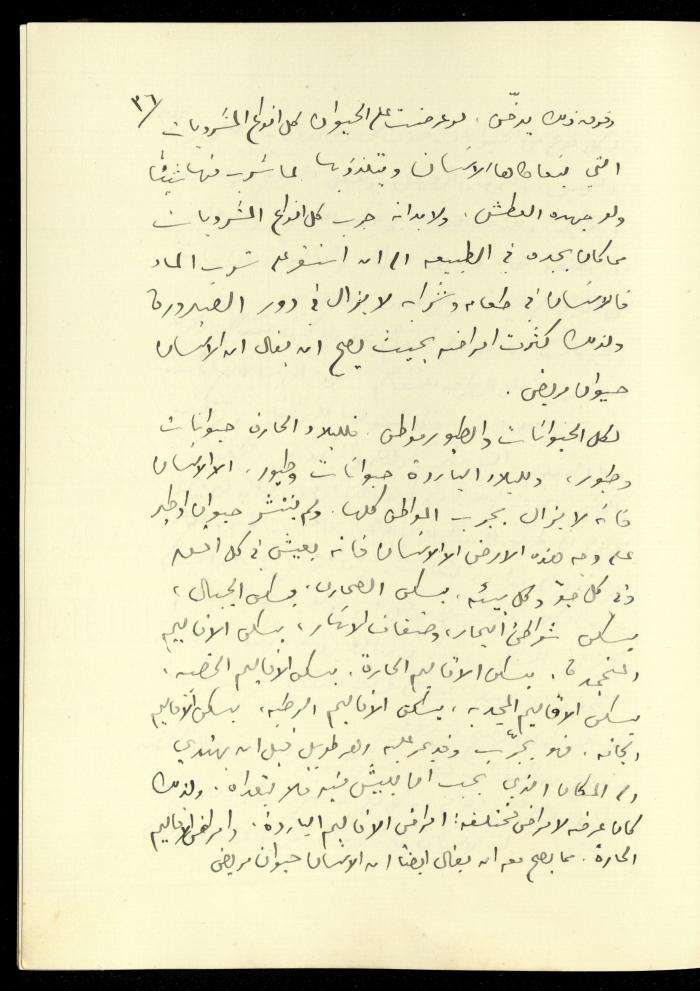 ٣٦
وفوق ذلك يدخّن. لو عرضت على الحيوان كل انواع المشروبات
التي يتعاطاها الانسان ويتلذذ بها لما شرب منها شيئًا
ولو جهده العطش. ولا بد انه جرب كل انواع المشروبات
مما كان يجده في الطبيعه الى ان استقر على شرب الماء
فالانسان في طعامه وشرابه لا يزال في دور الصيرورة
ولذلك كثرت امراضه بحيث يصح ان يقال ان الانسان
حيوان مريض.
لكل الحيوانات والطيور مواطن. فللبلاد الحارة حيوانات
وطيور، وللبلاد الباردة حيوانات وطيور. الا الانسان
فانه لا يزال يجرب المواطن كلها. ولم ينتشر حيوان او طير
على وجه هذه الارض الا الانسان فانه يعيش في كل افق
وفي كل جوّ وكل بيئه. يسكن الصحارى، يسكن الجبال،
يسكن شواطئ البحار، وضفاف الانهار، يسكن الاقاليم
المتجمدة، يسكن الاقاليم الحارة، يسكن الاقاليم الخصبه،
يسكن الاقاليم المجدبه، يسكن الاقاليم الرطبه، يسكن الاقاليم
الجافه. فهو يجرّب وقد يمر عليه دهر طويل قبل ان يهتدي
الى المكان الذي يجب ان يعيش فيه فلا يتعداه. ولذلك
كان عرضه لامراض مختلفه: امراض الاقاليم الباردة. وامراض الاقاليم
الحارة. مما يصح معه ان يقال ايضًا ان الانسان حيوان مريض